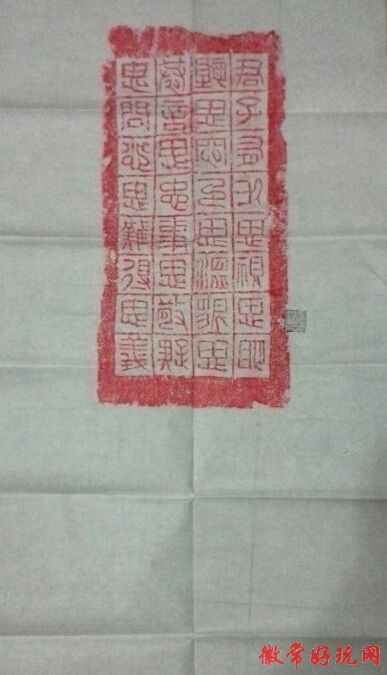 君子有九思視思明
聽思聰色思溫貌思
恭言思忠事思敬疑
思問忿思難得思義
徽常好玩网